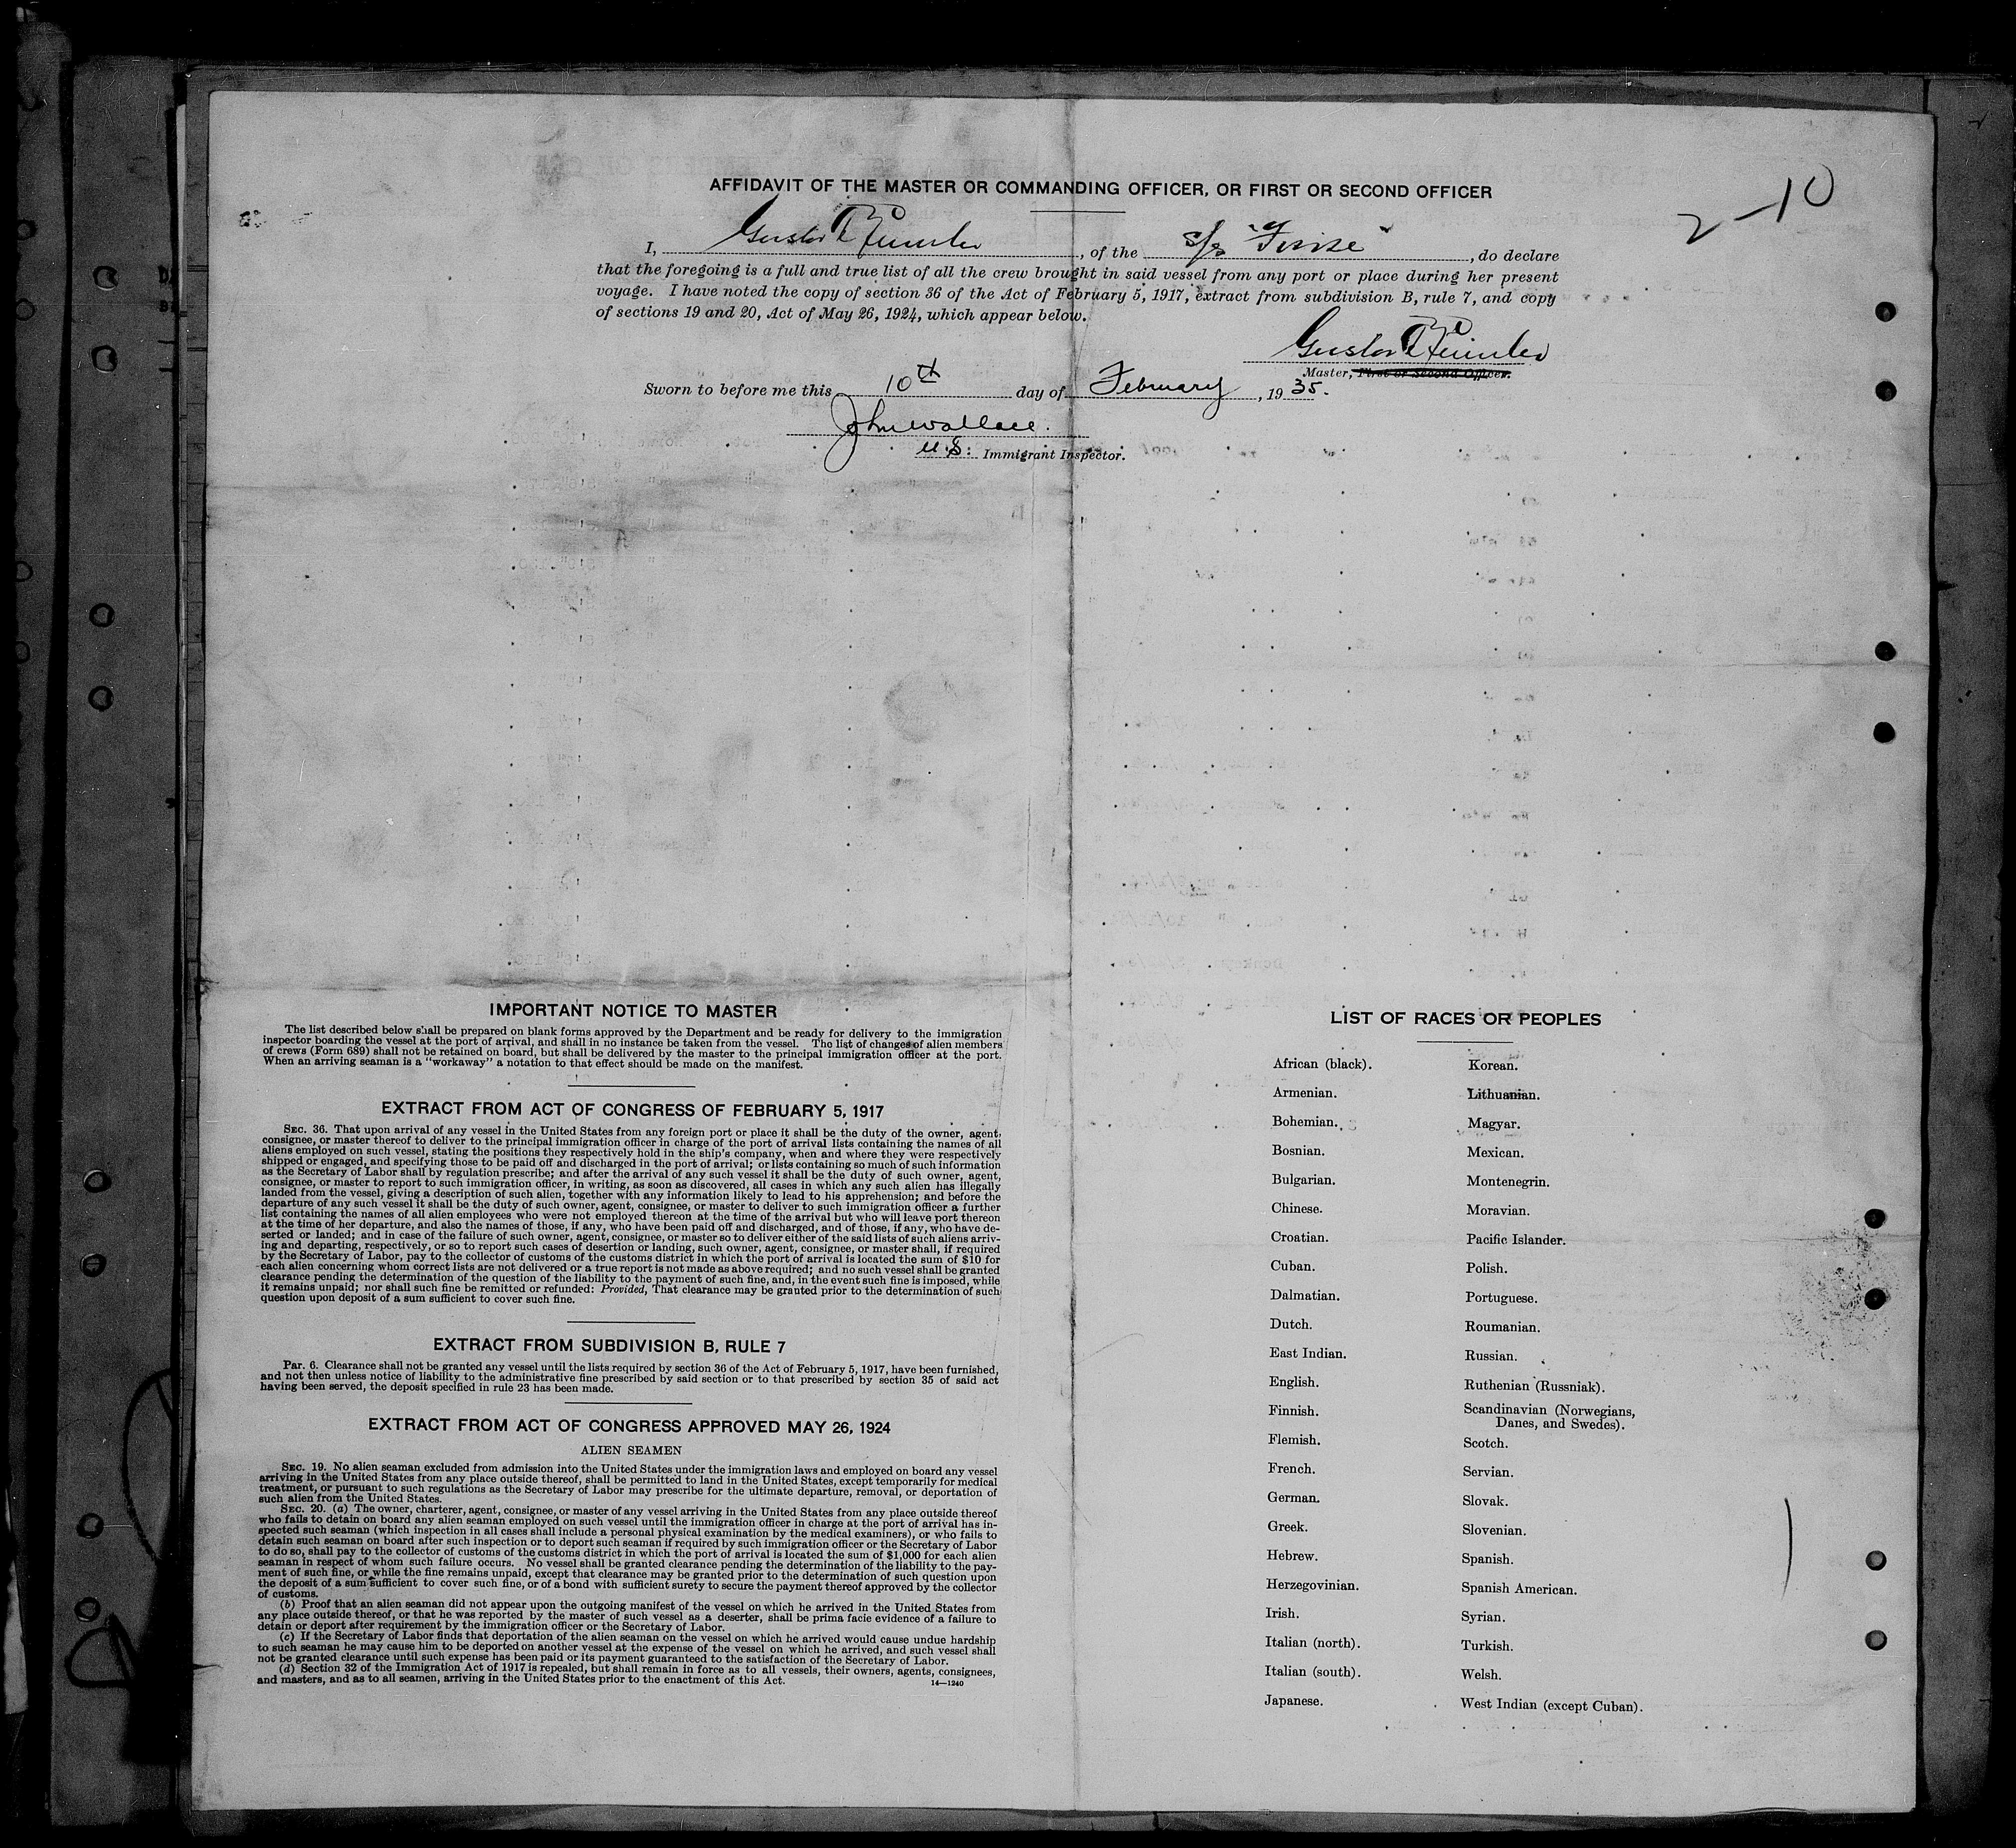 AFFIDAVIT OF THE MASTER OR COMMANDING OFFICER, OR FIRST OR SECOND OFFICER
2-10
I, Gustav, of the s/s, do declare
that the foregoing is a full and true list of all the crew brought in said vessel from any port or place during her present
voyage. I have noted the copy of section 36 of the Act of February 5, 1917, extract from subdivision B, rule 7, and copy
of sections 19 and 20, Act of May 26, 1924, which appear below.
Gustav
Master, First or Second Officer.
Sworn to before me this 10th day of February, 1935.
John Wallace.
U.S. Immigrant Inspector.
IMPORTANT NOTICE TO MASTER
The list described below shall be prepared on blank forms approved by the Department and be ready for delivery to the immigration
inspector boarding the vessel at the port of arrival, and shall in no instance be taken from the vessel. The list of changes of alien members
of crews (Form 689) shall not be retained on board, but shall be delivered by the master to the principal immigration officer at the port.
When an arriving seaman is a "workaway" a notation to that effect should be made on the manifest.
EXTRACT FROM ACT OF CONGRESS OF FEBRUARY 5, 1917
SEC. 36. That upon arrival of any vessel in the United States from any foreign port or place it shall be the duty of the owner, agent,
consignee, or master thereof to deliver to the principal immigration officer in charge of the port of arrival lists containing the names of all
aliens employed on such vessel, stating the positions they respectively hold in the ship's company, when and where they were respectively
shipped or engaged, and specifying those to be paid off and discharged in the port of arrival; or lists containing so much of such information
as the Secretary of Labor shall by regulation prescribe; and after the arrival of any such vessel it shall be the duty of such owner, agent,
consignee, or master to report to such immigration officer, in writing, as soon as discovered, all cases in which any such alien has illegally
landed from the vessel, giving a description of such alien, together with any information likely to lead to his apprehension; and before the
departure of any such vessel it shall be the duty of such owner, agent, consignee, or master to deliver to such immigration officer a further
list containing the names of all alien employees who were not employed thereon at the time of the arrival but who will leave port thereon
at the time of her departure, and also the names of those, if any, who have been paid off and discharged, and of those, if any, who have de-
serted or landed; and in case of the failure of such owner, agent, consignee, or master so to deliver either of the said lists of such aliens arriv-
ing and departing, respectively, or so to report such cases of desertion or landing, such owner, agent, consignee, or master shall, if required
by the Secretary of Labor, pay to the collector of customs of the customs district in which the port of arrival is located the sum of $10 for
each alien concerning whom correct lists are not delivered or a true report is not made as above required; and no such vessel shall be granted
clearance pending the determination of the question of the liability to the payment of such fine, and, in the event such fine is imposed, while
it remains unpaid; nor shall such fine be remitted or refunded: Provided, That clearance may be granted prior to the determination of such
question upon deposit of a sum sufficient to cover such fine.
EXTRACT FROM SUBDIVISION B, RULE 7
PAR. 6. Clearance shall not be granted any vessel until the lists required by section 36 of the Act of February 5, 1917, have been furnished,
and not then unless notice of liability to the administrative fine prescribed by said section or to that prescribed by section 35 of said act
having been served, the deposit specified in rule 23 has been made.
EXTRACT FROM ACT OF CONGRESS APPROVED MAY 26, 1924
ALIEN SEAMEN
SEC. 19. No alien seaman excluded from admission into the United States under the immigration laws and employed on board any vessel
arriving in the United States from any place outside thereof, shall be permitted to land in the United States, except temporarily for medical
treatment, or pursuant to such regulations as the Secretary of Labor may prescribe for the ultimate departure, removal, or deportation of
such alien from the United States.
SEC. 20. (a) The owner, charterer, agent, consignee, or master of any vessel arriving in the United States from any place outside thereof
who fails to detain on board any alien seaman employed on such vessel until the immigration officer in charge at the port of arrival has in-
spected such seaman (which inspection in all cases shall include a personal physical examination by the medical examiners), or who fails to
detain such seaman on board after such inspection or to deport such seaman if required by such immigration officer or the Secretary of Labor
to do so, shall pay to the collector of customs of the customs district in which the port of arrival is located the sum of $1,000 for each alien
seaman in respect of whom such failure occurs. No vessel shall be granted clearance pending the determination of the liability to the pay-
ment of such fine, or while the fine remains unpaid, except that clearance may be granted prior to the determination of such question upon
the deposit of a sum sufficient to cover such fine, or of a bond with sufficient surety to secure the payment thereof approved by the collector
of customs.
(b) Proof that an alien seaman did not appear upon the outgoing manifest of the vessel on which he arrived in the United States from
any place outside thereof, or that he was reported by the master of such vessel as a deserter, shall be prima facie evidence of a failure to
detain or deport after requirement by the immigration officer or the Secretary of Labor.
(c) If the Secretary of Labor finds that deportation of the alien seaman on the vessel on which he arrived would cause undue hardship
to such seaman he may cause him to be deported on another vessel at the expense of the vessel on which he arrived, and such vessel shall
not be granted clearance until such expense has been paid or its payment guaranteed to the satisfaction of the Secretary of Labor.
(d) Section 32 of the Immigration Act of 1917 is repealed, but shall remain in force as to all vessels, their owners, agents, consignees,
and masters, and as to all seamen, arriving in the United States prior to the enactment of this Act.
14—1240
LIST OF RACES OR PEOPLES
African (black).
Armenian.
Bohemian.
Bosnian.
Bulgarian.
Chinese.
Croatian.
Cuban.
Dalmatian.
Dutch.
East Indian.
English.
Finnish.
Flemish.
French.
German.
Greek.
Hebrew.
Herzegovinian.
Irish.
Italian (north).
Italian (south).
Japanese.
Korean.
Lithuanian.
Magyar.
Mexican.
Montenegrin.
Moravian.
Pacific Islander.
Polish.
Portuguese.
Roumanian.
Russian.
Ruthenian (Russniak).
Scandinavian (Norwegians,
Danes, and Swedes).
Scotch.
Servian.
Slovak.
Slovenian.
Spanish.
Spanish American.
Syrian.
Turkish.
Welsh.
West Indian (except Cuban).